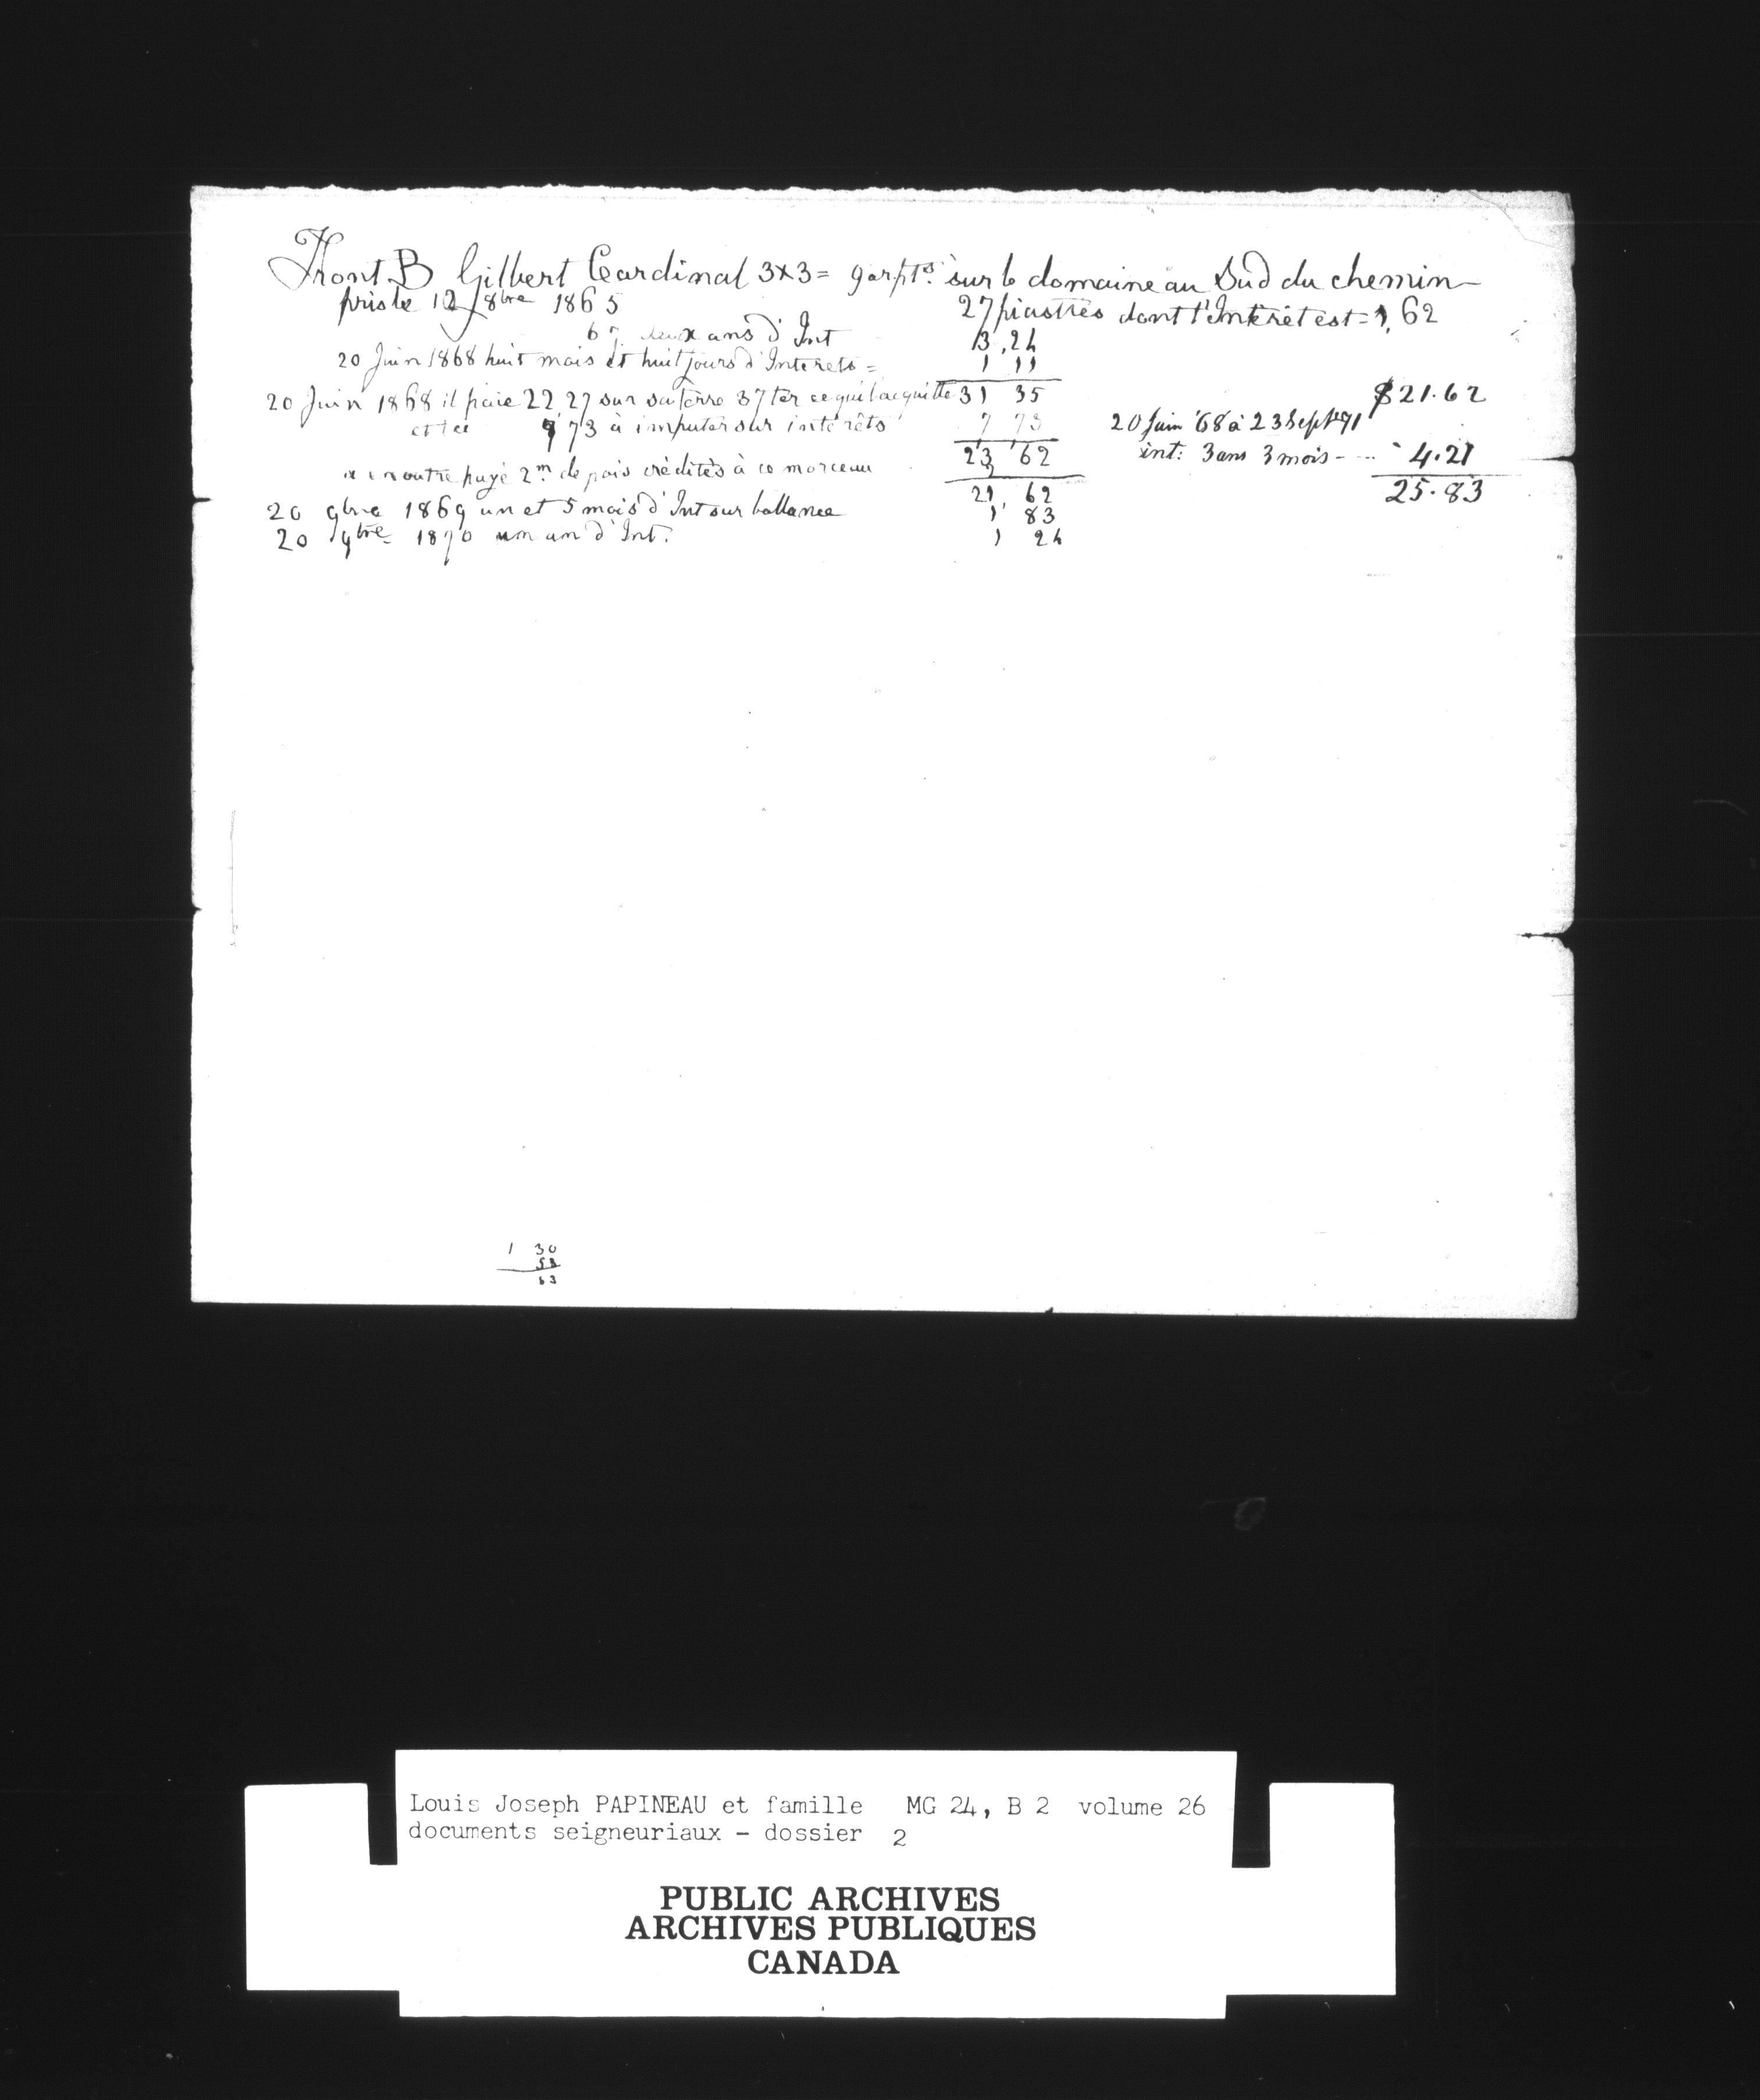 Front B Gilbert Cardinal 3x3 = 9 arpts. sur le domaine au Sud du chemin
pris le 12 8bre 1865 27 piastres dont l'Intérêt est = 1,62
deux ans d'Int 3,24
20 Juin 1868 huit mois et huit jours d'Interets = 1 11
20 Juin 1868 il paie 22,27 sur sa terre 37 ter ce qui l'acquitte 31 35
73 à imputer sur intérêts 7 73
23 62
en outre payé 2 m. de pois crédités à ce morceau 2
21, 62
20 9bre 1869 un et 5 mois d'Int sur ballance 1' 83
20 9bre 1870 un an d'Int. 1 24
$21.62
20 Juin '68 à 23 Sept 71
int: 3 ans 3 mois - 4.21
25.83
1 30
53
63
Louis Joseph PAPINEAU et famille MG 24, B 2 volume 26
documents seigneuriaux - dossier 2
PUBLIC ARCHIVES
ARCHIVES PUBLIQUES
CANADA